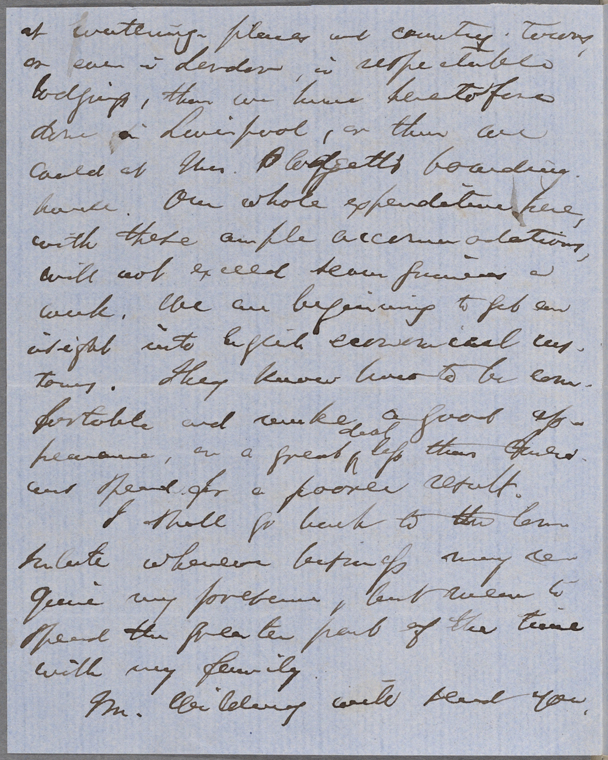 at watering-places and country-towns,
or even in London, in respectable
lodgings, than we have heretofore
done in Liverpool, or than we
could at Mrs. Blodgett's boarding-
house. Our whole expenditure here,
with these ample accommodations,
will not exceed seven guineas a
week. We are beginning to get an
insight into English economical cus-
toms. They know how to be com-
fortable and make a good ap-
pearance, on a great deal less than Ameri-
cans spend for a poorer result.
I shall go back to the Con-
sulate whenever business may re-
quire my presence, but mean to
spend the greater part of the time
with my family
Mr. Wilding will send you,